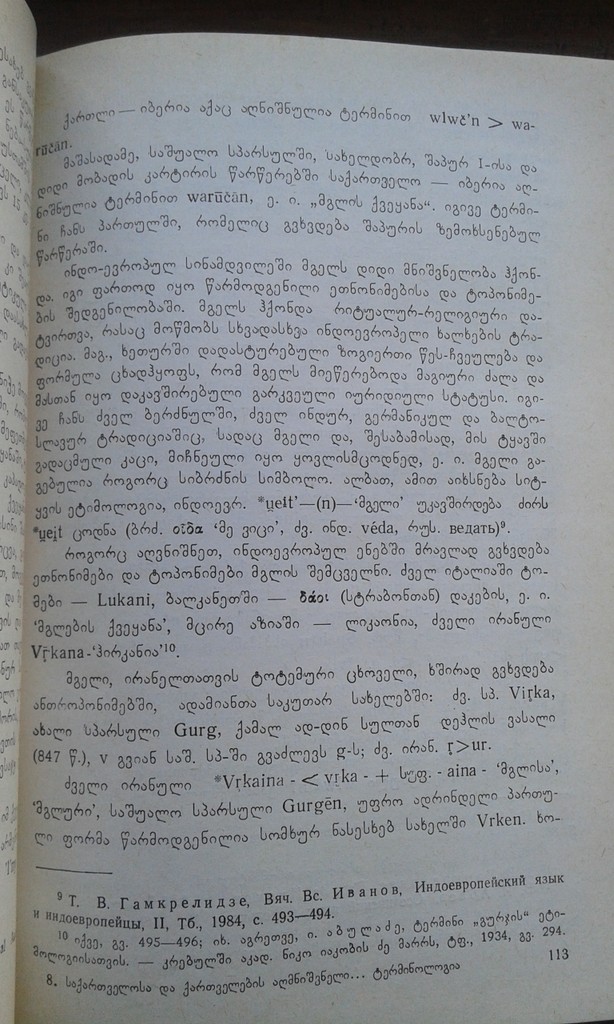 ქართლი — იბერია აქაც აღნიშნულია ტერმინით wlwč'n > wa-
rūčān.
მაშასადამე, საშუალო სპარსულში, სახელდობრ, შაპურ I-ისა და
დიდი მობადის კარტირის წარწერებში საქართველო — იბერია აღ-
ნიშნულია ტერმინით warūčān, ე. ი. „მგლის ქვეყანა“. იგივე ტერმი-
ნი ჩანს პართულში, რომელიც გვხვდება შაპურის ზემოხსენებულ
წარწერაში.
ინდო-ევროპულ სინამდვილეში მგელს დიდი მნიშვნელობა ჰქონ-
და. იგი ფართოდ იყო წარმოდგენილი ეთნონიმებისა და ტოპონიმე-
ბის შედგენილობაში. მგელს ჰქონდა რიტუალურ-რელიგიური და-
ტვირთვა, რასაც მოწმობს სხვადასხვა ინდოევროპელი ხალხების ტრა-
დიცია. მაგ., ხეთურში დადასტურებული ზოგიერთი წეს-ჩვეულება და
ფორმულა ცხადჰყოფს, რომ მგელს მიეწერებოდა მაგიური ძალა და
მასთან იყო დაკავშირებული გარკვეული იურიდიული სტატუსი. იგი-
ვე ჩანს ძველ ბერძნულში, ძველ ინდურ, გერმანიკულ და ბალტო-
სლავურ ტრადიციაშიც, სადაც მგელი და, შესაბამისად, მის ტყავში
გადაცმული კაცი, მიჩნეული იყო ყოვლისმცოდნედ, ე. ი. მგელი გა-
გებულია როგორც სიბრძნის სიმბოლო. ალბათ, ამით აიხსნება სიტ-
ყვის ეტიმოლოგია, ინდოევრ. *u̯eit'—(n)—‘მგელი’ უკავშირდება ძირს
*u̯eit ცოდნა (ბრძ. οἶδα ‘მე ვიცი’, ძვ. ინდ. véda, რუს. ведать)⁹.
როგორც აღვნიშნეთ, ინდოევროპულ ენებში მრავლად გვხვდება
ეთნონიმები და ტოპონიმები მგლის შემცველნი. ძველ იტალიაში ტო-
მები — Lukani, ბალკანეთში — δάοι (სტრაბონთან) დაკების, ე. ი.
‘მგლების ქვეყანა’, მცირე აზიაში — ლიკაონია, ძველი ირანული
Vr̥kana-‘ჰირკანია’¹⁰.
მგელი, ირანელთათვის ტოტემური ცხოველი, ხშირად გვხვდება
ანთროპონიმებში, ადამიანთა საკუთარ სახელებში: ძვ. სპ. Vir̥ka,
ახალი სპარსული Gurg, ქამალ ად-დინ სულთან დეჰლის ვასალი
(847 წ.), v გვიან საშ. სპ-ში გვაძლევს g-ს; ძვ. ირან. r̥>ur.
ძველი ირანული *Vr̥kaina - < vr̥ka - + სუფ. - aina - ‘მგლისა’,
‘მგლური’, საშუალო სპარსული Gurgēn, უფრო ადრინდელი პართუ-
ლი ფორმა წარმოდგენილია სომხურ ნასესხებ სახელში Vrken. ხო-
⁹ Т. В. Гамкрелидзе, Вяч. Вс. Иванов, Индоевропейский язык
и индоевропейцы, II, Тб., 1984, с. 493—494.
¹⁰ იქვე, გვ. 495—496; იხ. აგრეთვე, ი. აბულაძე, ტერმინი „გურჯის“ ეტი-
მოლოგიისათვის. — კრებულში აკად. ნიკო იაკობის ძე მარრს, ტფ., 1934, გვ. 294.
8. საქართველოსა და ქართველების აღმნიშვნელი... ტერმინოლოგია
113